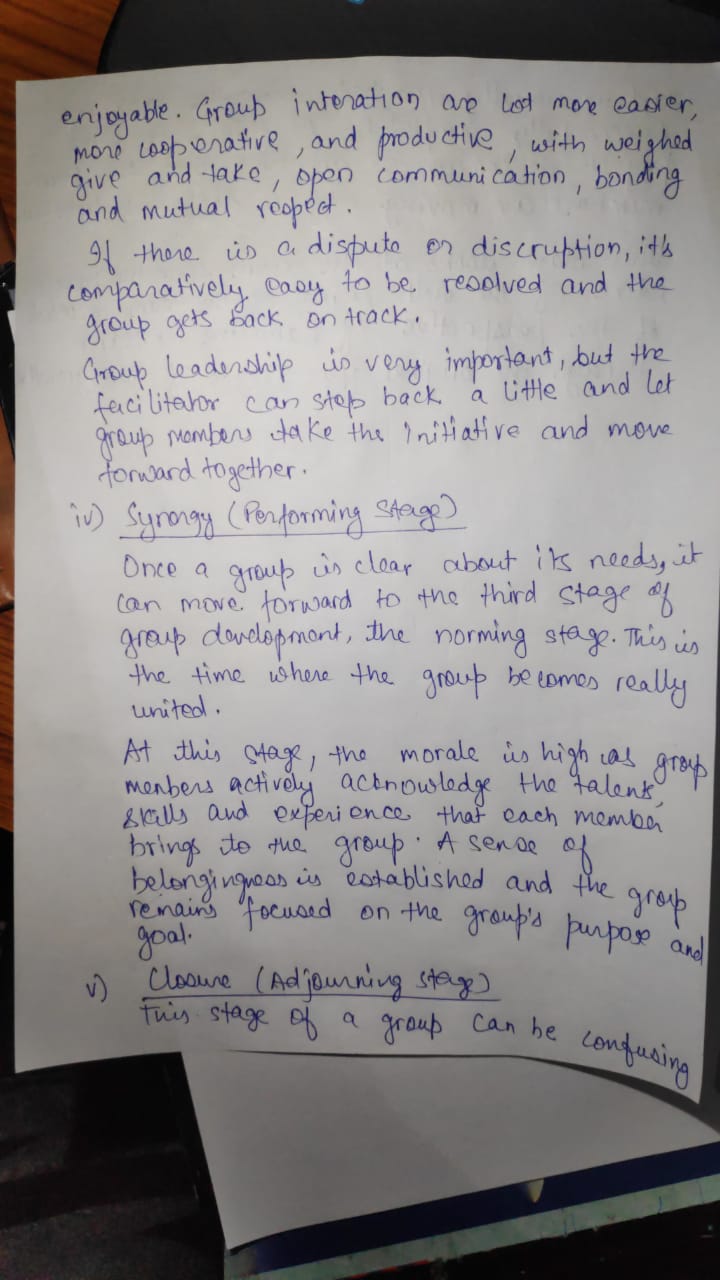 enjoyable. Group interation are lot more easier,
more cooperative, and productive, with weighed
give and take, open communication, bonding
and mutual respect.
If there is a dispute or discruption, it's
comparatively easy to be resolved and the
group gets back on track.
Group leadership is very important, but the
facilitator can step back a little and let
group members take the initiative and move
forward together.
iv) Synergy (Performing Stage)
Once a group is clear about its needs, it
can move forward to the third stage of
group development, the norming stage. This is
the time where the group becomes really
united.
At this stage, the morale is high as group
menbers actively acknowledge the talents,
skills and experience that each member
brings to the group. A sense of
belongingness is established and the group
remains focused on the group's purpose and
goal.
v) Closure (Adjourning stage)
This stage of a group can be confusing